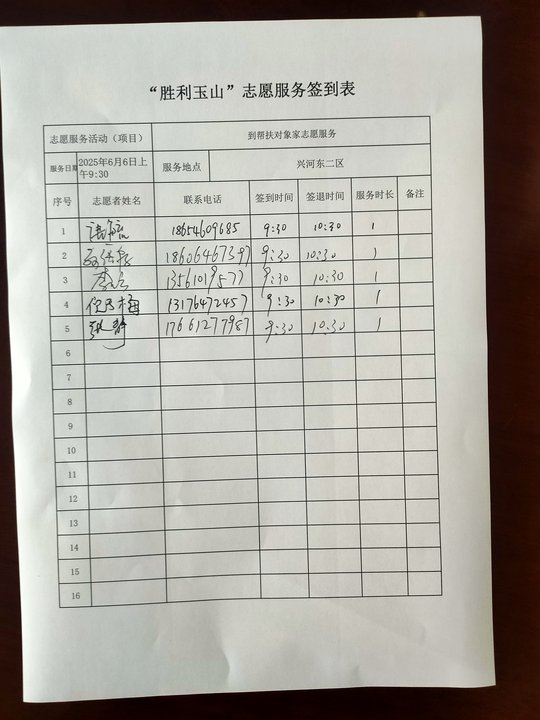 “胜利玉山”志愿服务签到表
志愿服务活动（项目） 到帮扶对象家志愿服务
服务日期 2025年6月6日上午9:30 服务地点 兴河东二区
序号 志愿者姓名 联系电话 签到时间 签退时间 服务时长 备注
1 18654609685 9:30 10:30 1
2 18606467397 9:30 10:30 1
3 13561019577 9:30 10:30 1
4 13176472457 9:30 10:30 1
5 张静 17661277987 9:30 10:30 1
6
7
8
9
10
11
12
13
14
15
16